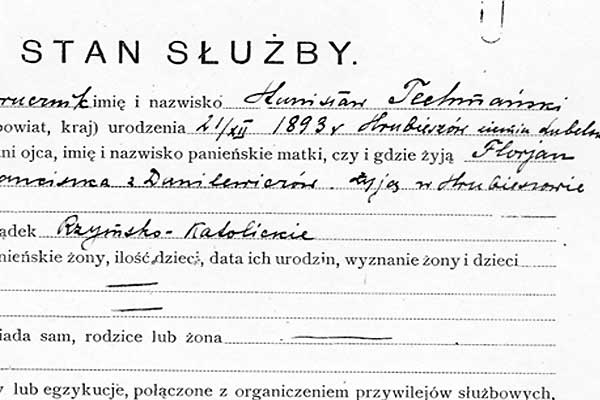 STAN SŁUŻBY.
imię i nazwisko Stanisław Techmański
powiat, kraj) urodzenia 21/XII 1893 r Hrubieszów ziemia lubels
ni ojca, imię i nazwisko panieńskie matki, czy i gdzie żyją Florjan
anciszka z Danilewiczów. żyją w Hrubieszowie
ządek Rzymsko-Katolickie
nieńskie żony, ilość dzieci, data ich urodzin, wyznanie żony i dzieci
iada sam, rodzice lub żona
y lub egzykucje, połączone z organiczeniem przywilejów służbowych,